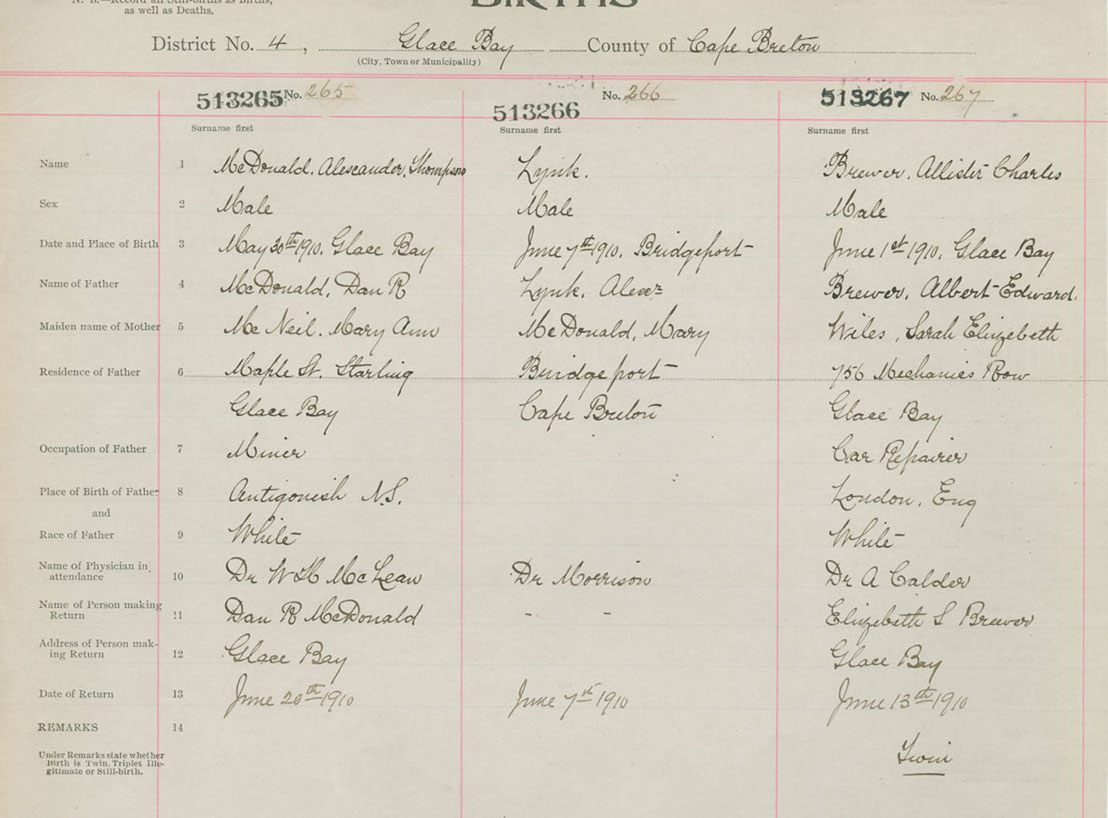 N. B.—Record all Still-births as Births,
as well as Deaths.
BIRTHS
District No. 4, Glace Bay County of Cape Breton
(City, Town or Municipality)
513265 No. 265 513266 No. 266 513267 No. 267
Surname first Surname first Surname first
Name 1 McDonald, Alexander, Thompson Lynk. Brewer, Allister Charles
Sex 2 Male Male Male
Date and Place of Birth 3 May 30th 1910, Glace Bay June 7th 1910, Bridgeport June 1st 1910, Glace Bay
Name of Father 4 McDonald, Dan R Lynk, Alexr Brewer, Albert Edward.
Maiden name of Mother 5 McNeil, Mary Ann McDonald, Mary Wiles, Sarah Elizebeth
Residence of Father 6 Maple St. Starling Bridgeport 756 Mechanics Row
Glace Bay Cape Breton Glace Bay
Occupation of Father 7 Miner Car Repairer
Place of Birth of Father 8 Antigonish N.S. London, Eng
and
Race of Father 9 White White
Name of Physician in attendance 10 Dr W H McLean Dr Morrison Dr A Calder
Name of Person making Return 11 Dan R McDonald - - Elizebeth S Brewer
Address of Person making Return 12 Glace Bay Glace Bay
Date of Return 13 June 20th 1910 June 7th 1910 June 13th 1910
REMARKS 14
Under Remarks state whether
Birth is Twin, Triplet Ille-
gitimate or Still-birth.
Twin